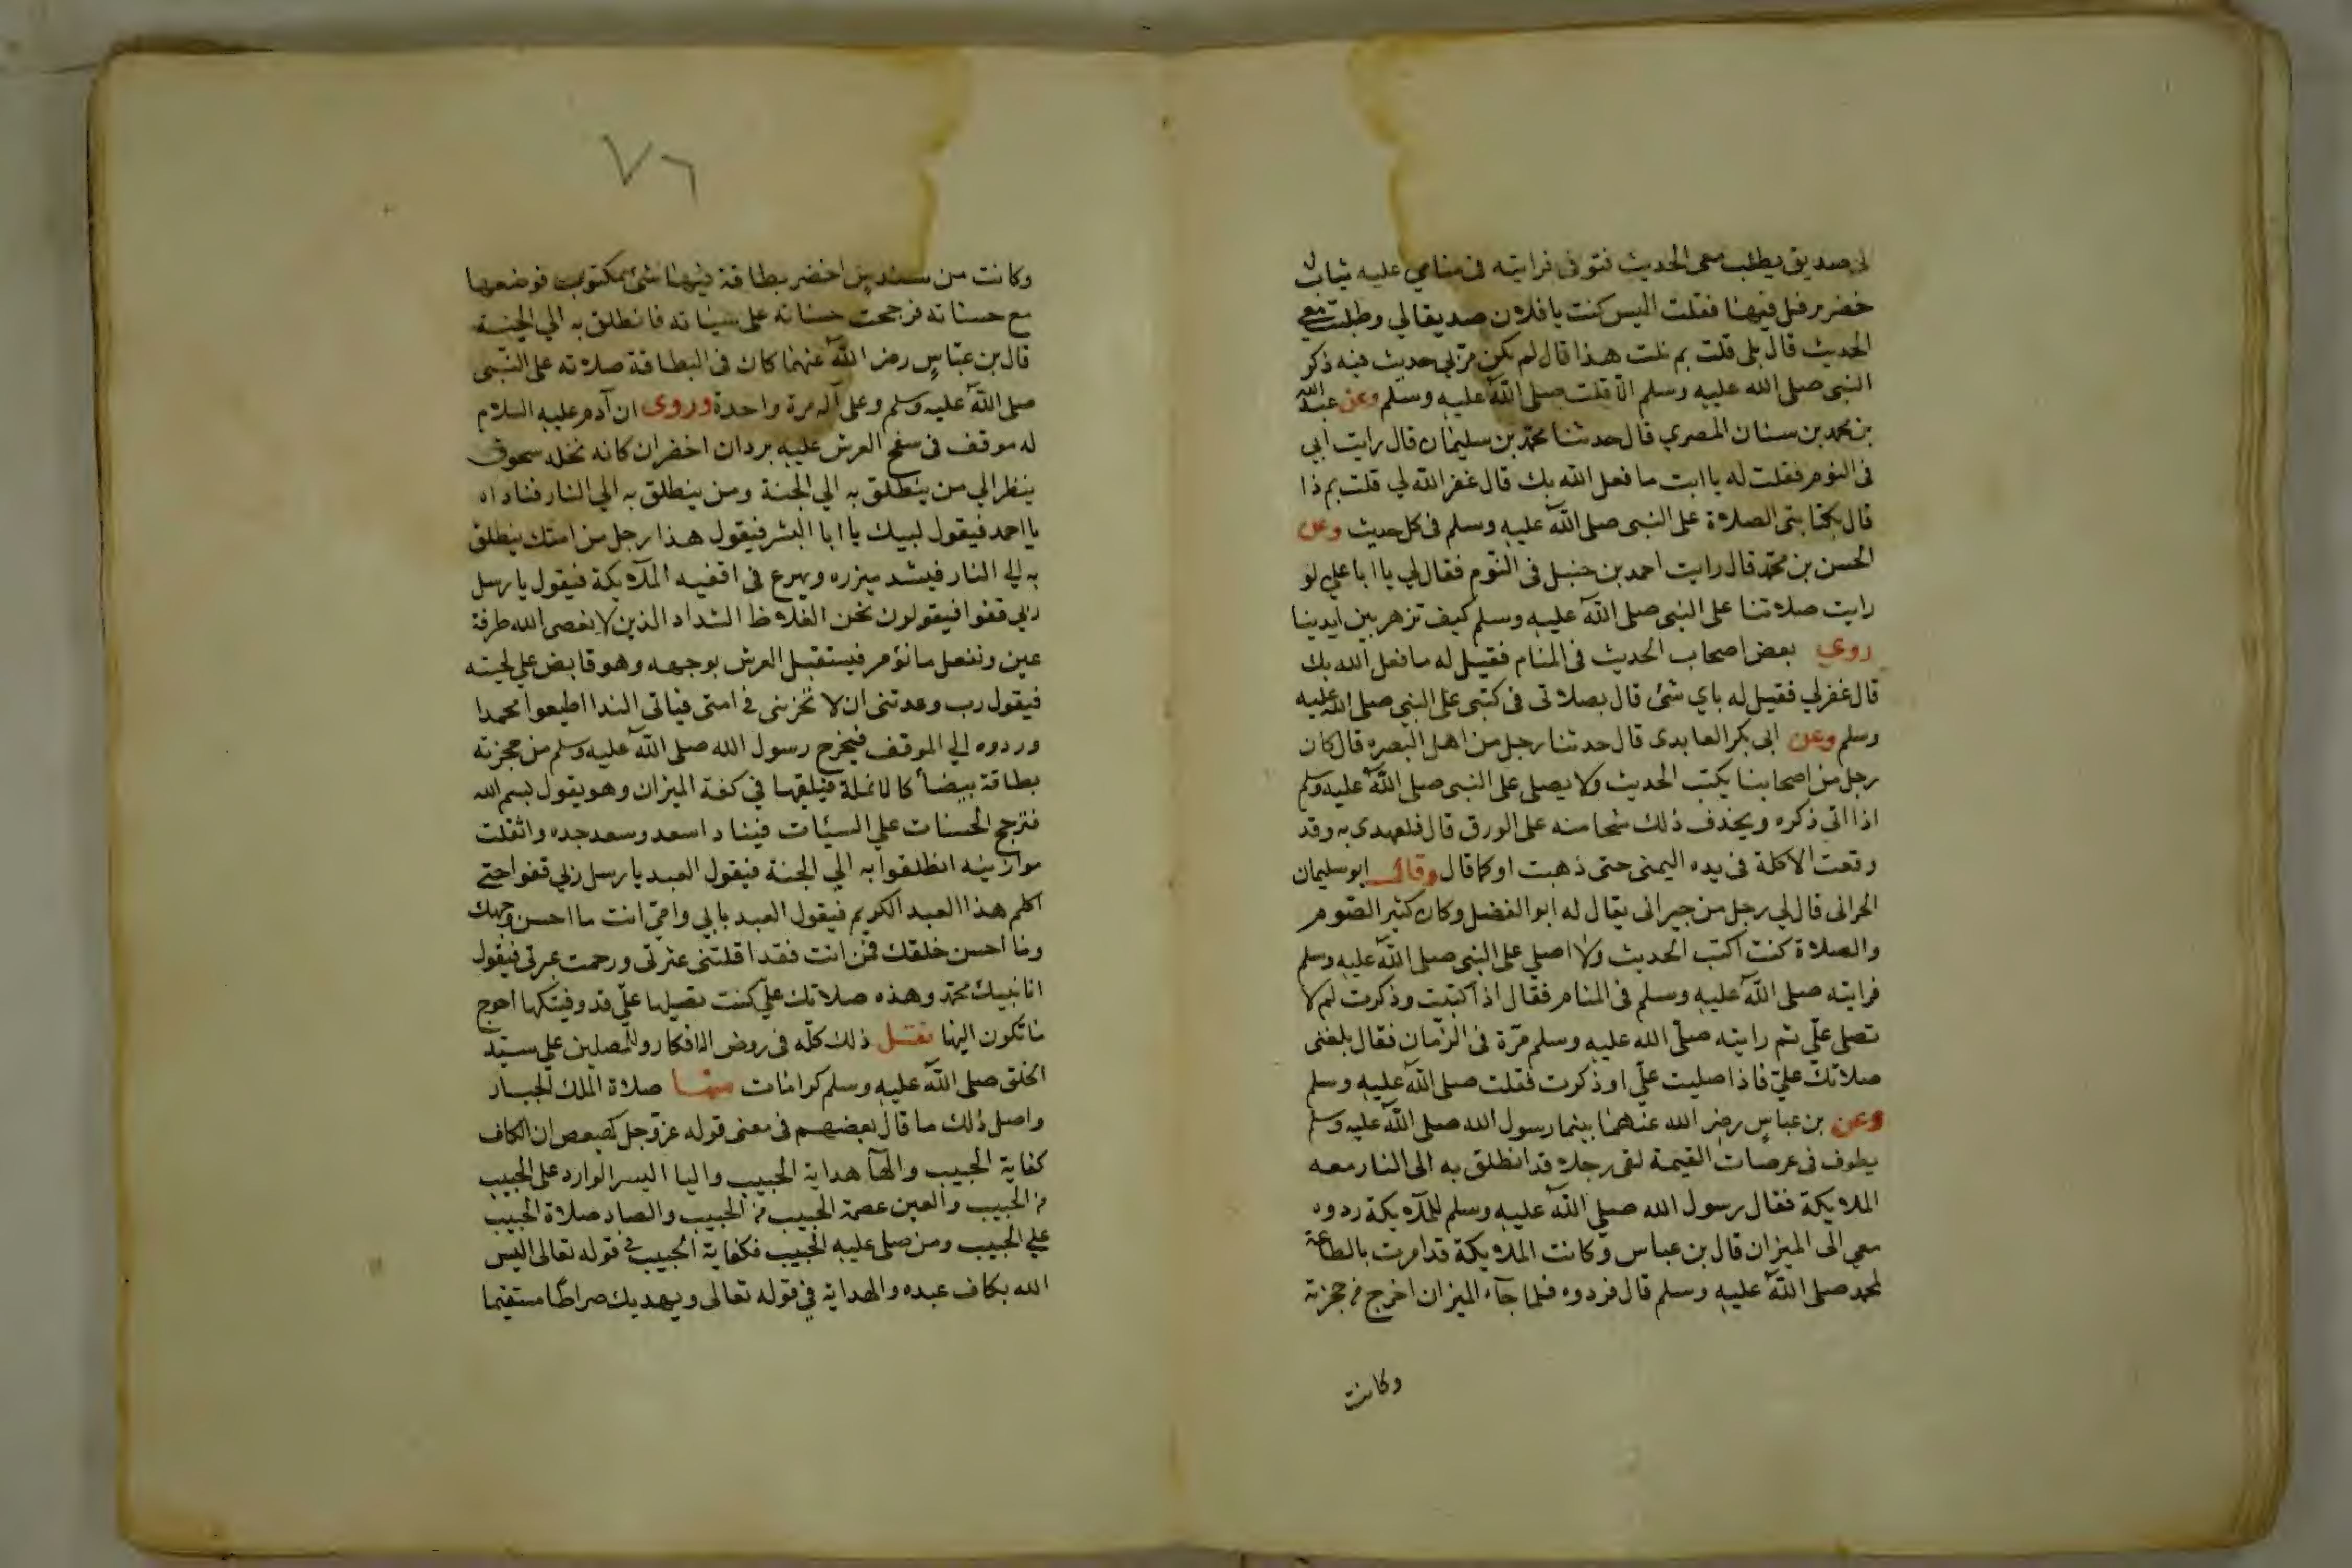 لي صديق يطلب معي الحديث فتوفي فرايته في منامي عليه ثياب
خضر يرفل فيها فقلت اليس كنت يا فلان صديقا لي وطلبت معي
الحديث قال بلى قلت بم نلت هذا قال لم يكن مر بي حديث فيه ذكر
النبي صلى الله عليه وسلم الا قلت صلى الله عليه وسلم وعن عبد الله
بن محمد بن سنان المصري قال حدثنا محمد بن سليمان قال رايت ابي
في النوم فقلت له يا ابت ما فعل الله بك قال غفر الله لي قلت بم ذا
قال بكتابتي الصلاة على النبي صلى الله عليه وسلم في كل حديث وعن
الحسن بن محمد قال رايت احمد بن حنبل في النوم فقال لي يا ابا علي لو
رايت صلاتنا على النبي صلى الله عليه وسلم كيف تزهر بين ايدينا
روي بعض اصحاب الحديث في المنام فقيل له ما فعل الله بك
قال غفر لي فقيل له باي شئ قال بصلاتي في كتبي على النبي صلى الله عليه
وسلم وعن ابي بكر العابدي قال حدثنا رجل من اهل البصره قال كان
رجل من اصحابنا يكتب الحديث ولا يصلي على النبي صلى الله عليه وسلم
اذا اتى ذكره ويحذف ذلك شحا منه على الورق قال فلعهدي به وقد
وقعت الاكلة في يده اليمنى حتى ذهبت او كما قال وقال ابو سليمان
الحراني قال لي رجل من جيراني يقال له ابو الفضل وكان كثير الصوم
والصلاة كنت اكتب الحديث ولا اصلي على النبي صلى الله عليه وسلم
فرايته صلى الله عليه وسلم في المنام فقال اذا كتبت وذكرت لم لا
تصلي علي ثم رايته صلى الله عليه وسلم مرة في الزمان فقال بلغني
صلاتك علي فاذا صليت علي او ذكرت فقلت صلى الله عليه وسلم
وعن بن عباس رضر الله عنهما بينما رسول الله صلى الله عليه وسلم
يطوف في عرصات القيمة لقى رجلا قد انطلق به الى النار معه
الملايكة فقال رسول الله صلى الله عليه وسلم للملايكة ردوه
معي الى الميزان قال بن عباس وكانت الملايكة قد امرت بالطاعة
لمحمد صلى الله عليه وسلم قال فردوه فلما جآء الميزان اخرج من حجزته
وكانت
٧٦
وكانت من سندس اخضر بطاقة فيها شئ مكتوب فوضعها
مع حسناته فرجحت حسناته على سياته فانطلق به الي الجنة
قال بن عباس رضر الله عنهما كان في البطاقة صلاته على النبي
صلى الله عليه وسلم وعلى آله مرة واحدة وروى ان آدم عليه السلام
له موقف في سفح العرش عليه بردان اخضران كانه نخله سحوق
ينظر الي من ينطلق به الي الجنة ومن ينطلق به الي النار فناداه
يا احمد فيقول لبيك يا ابا البشر فيقول هذا رجل من امتك ينطلق
به الي النار فيشد ميزره ويهرع في اقفيه الملايكة فيقول يا رسل
ربي قفوا فيقولون نحن الغلاظ الشداد الذين لا نعصى الله طرفة
عين ونفعل ما نؤمر فيستقبل العرش بوجهه وهو قابض علي لحيته
فيقول رب وعدتني ان لا تخزني في امتي فياتي الندا اطيعوا محمدا
وردوه الي الموقف فيخرج رسول الله صلى الله عليه وسلم من حجزته
بطاقة بيضأ كالانملة فيلقيها في كفة الميزان وهو يقول بسم الله
فترجح الحسنات علي السيئات فيناد اسعد وسعد جده واثقلت
موازينه انطلقوا به الي الجنة فيقول العبد يا رسل ربي قفوا حتي
اكلم هذا العبد الكريم فيقول العبد بابي وامي انت ما احسن وجهك
وما احسن خلقك فمن انت فقد اقلتني عثرتي ورحمت عبرتي فيقول
انا نبيك محمد وهذه صلاتك علي كنت تصليها علي قد وفيتكها احوج
ما تكون اليها نقل ذلك كله في روض الافكار وللمصلين علي سيد
الخلق صلى الله عليه وسلم كرامات منها صلاة الملك الجبار
واصل ذلك ما قال بعضهم في معنى قوله عز وجل كهيعص ان الكاف
كفاية الحبيب والهآ هداية الحبيب واليا اليسر الوارد على الحبيب
من الحبيب والعين عصمة الحبيب من الحبيب والصاد صلاة الحبيب
علي الحبيب ومن صلى عليه الحبيب فكفاية الحبيب في قوله تعالى اليس
الله بكاف عبده والهداية في قوله تعالى ويهديك صراطا مستقيما